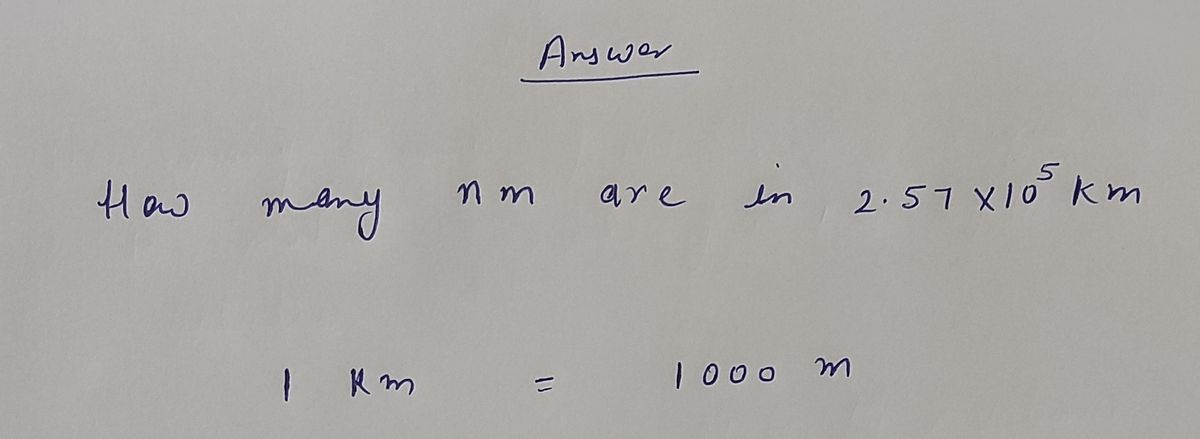 Answer
How many nm are in 2.57 x10⁵ km
1 Km = 1000 m